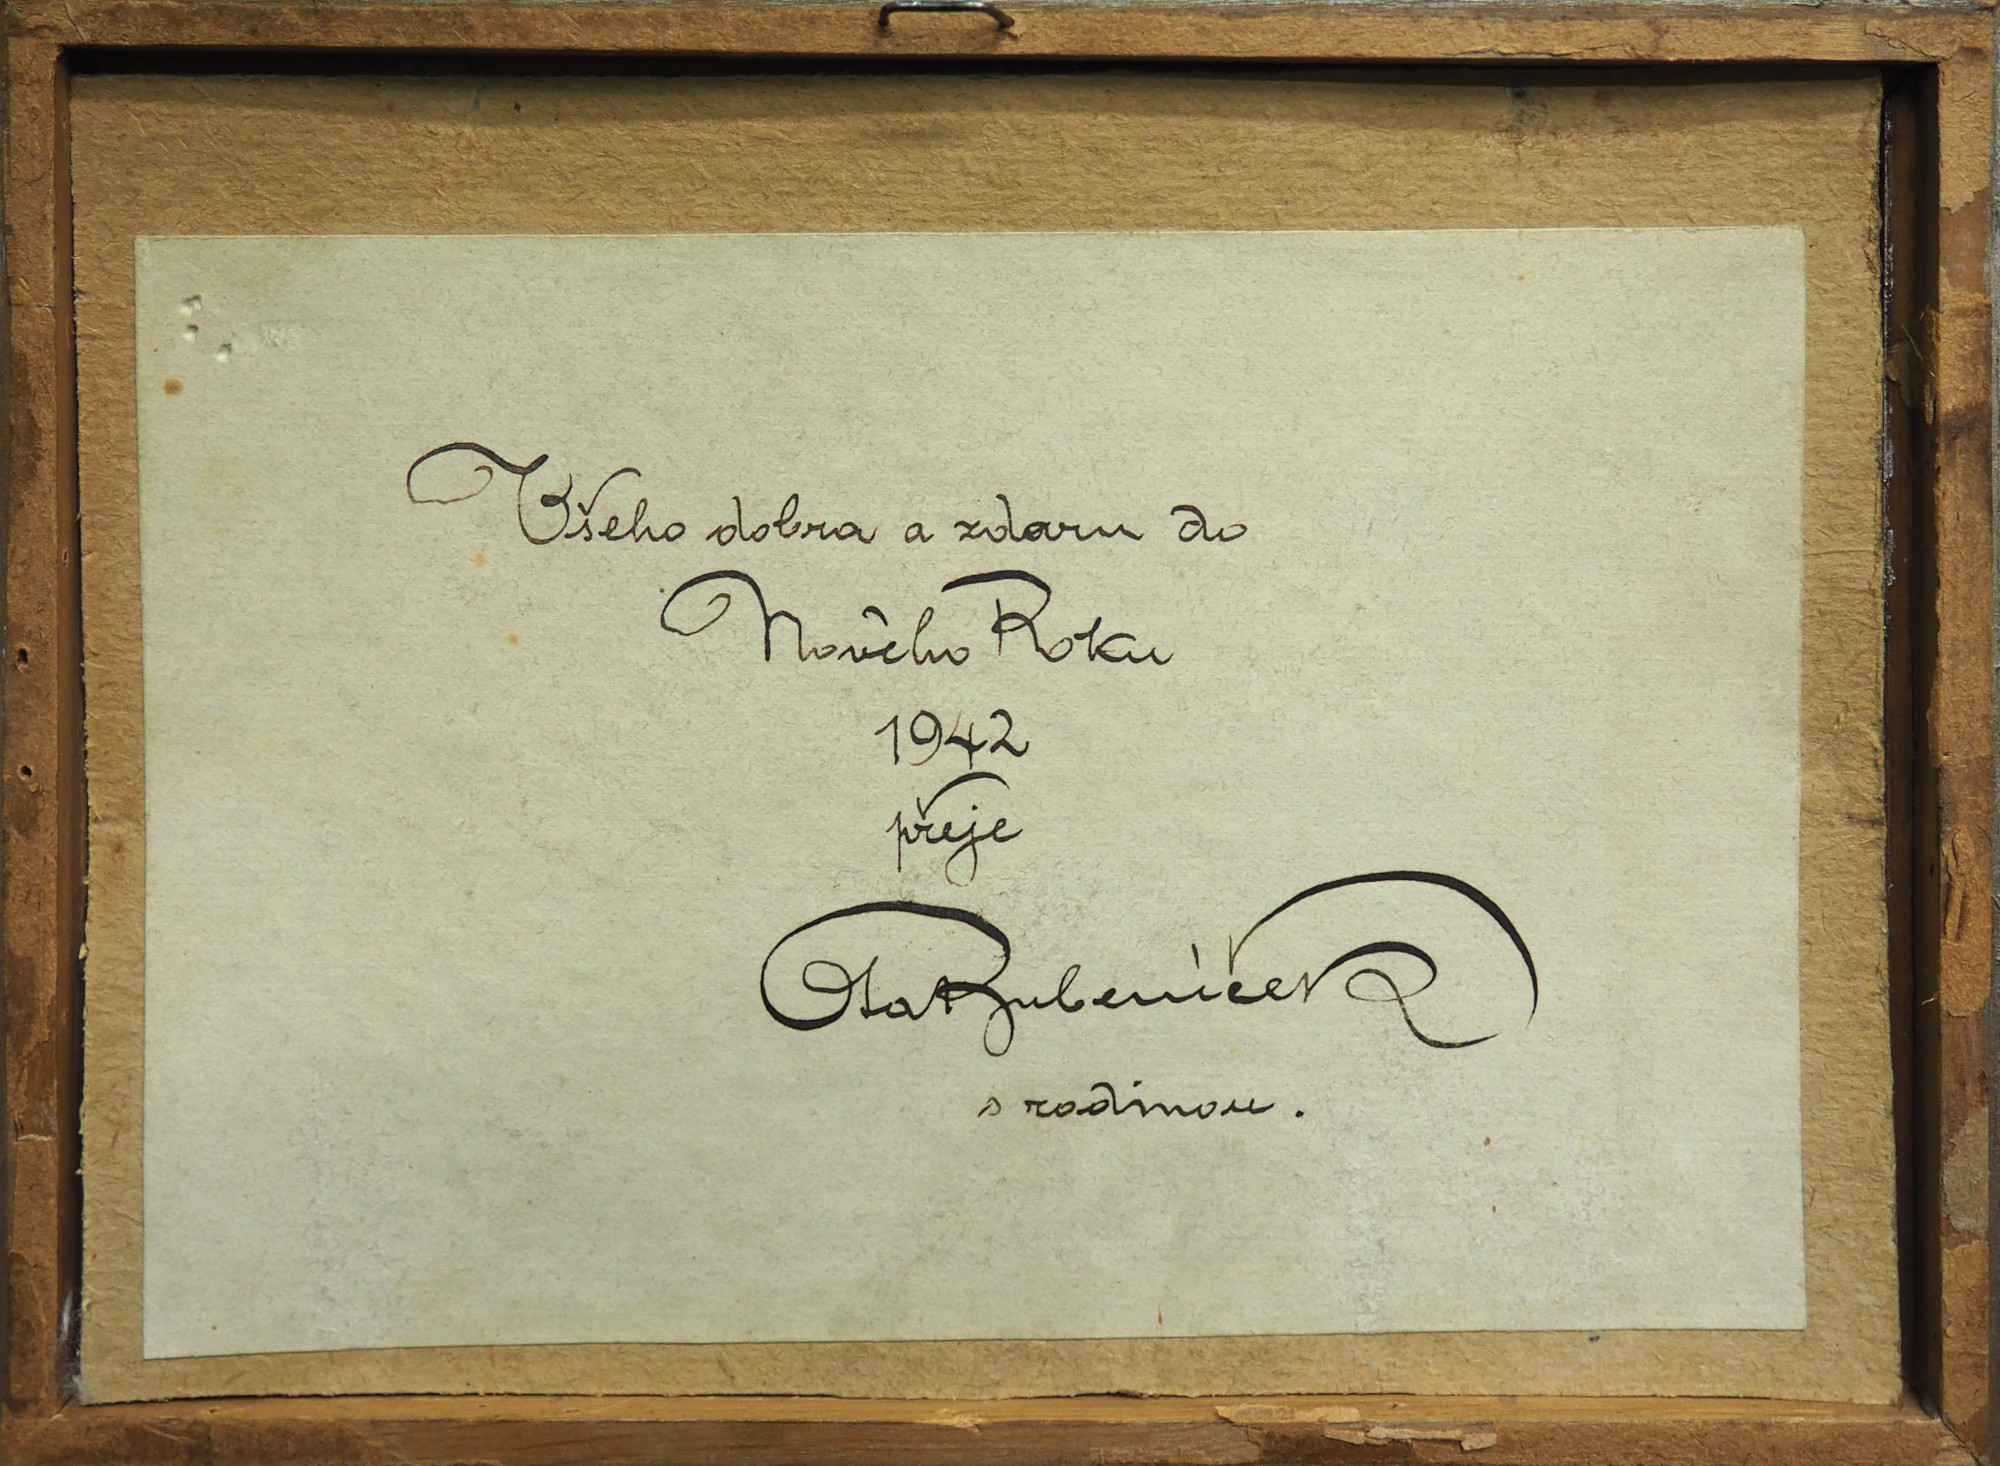 Všeho dobra a zdaru do
Nového Roku
1942
přeje
Ota Bubeníček
s rodinou.